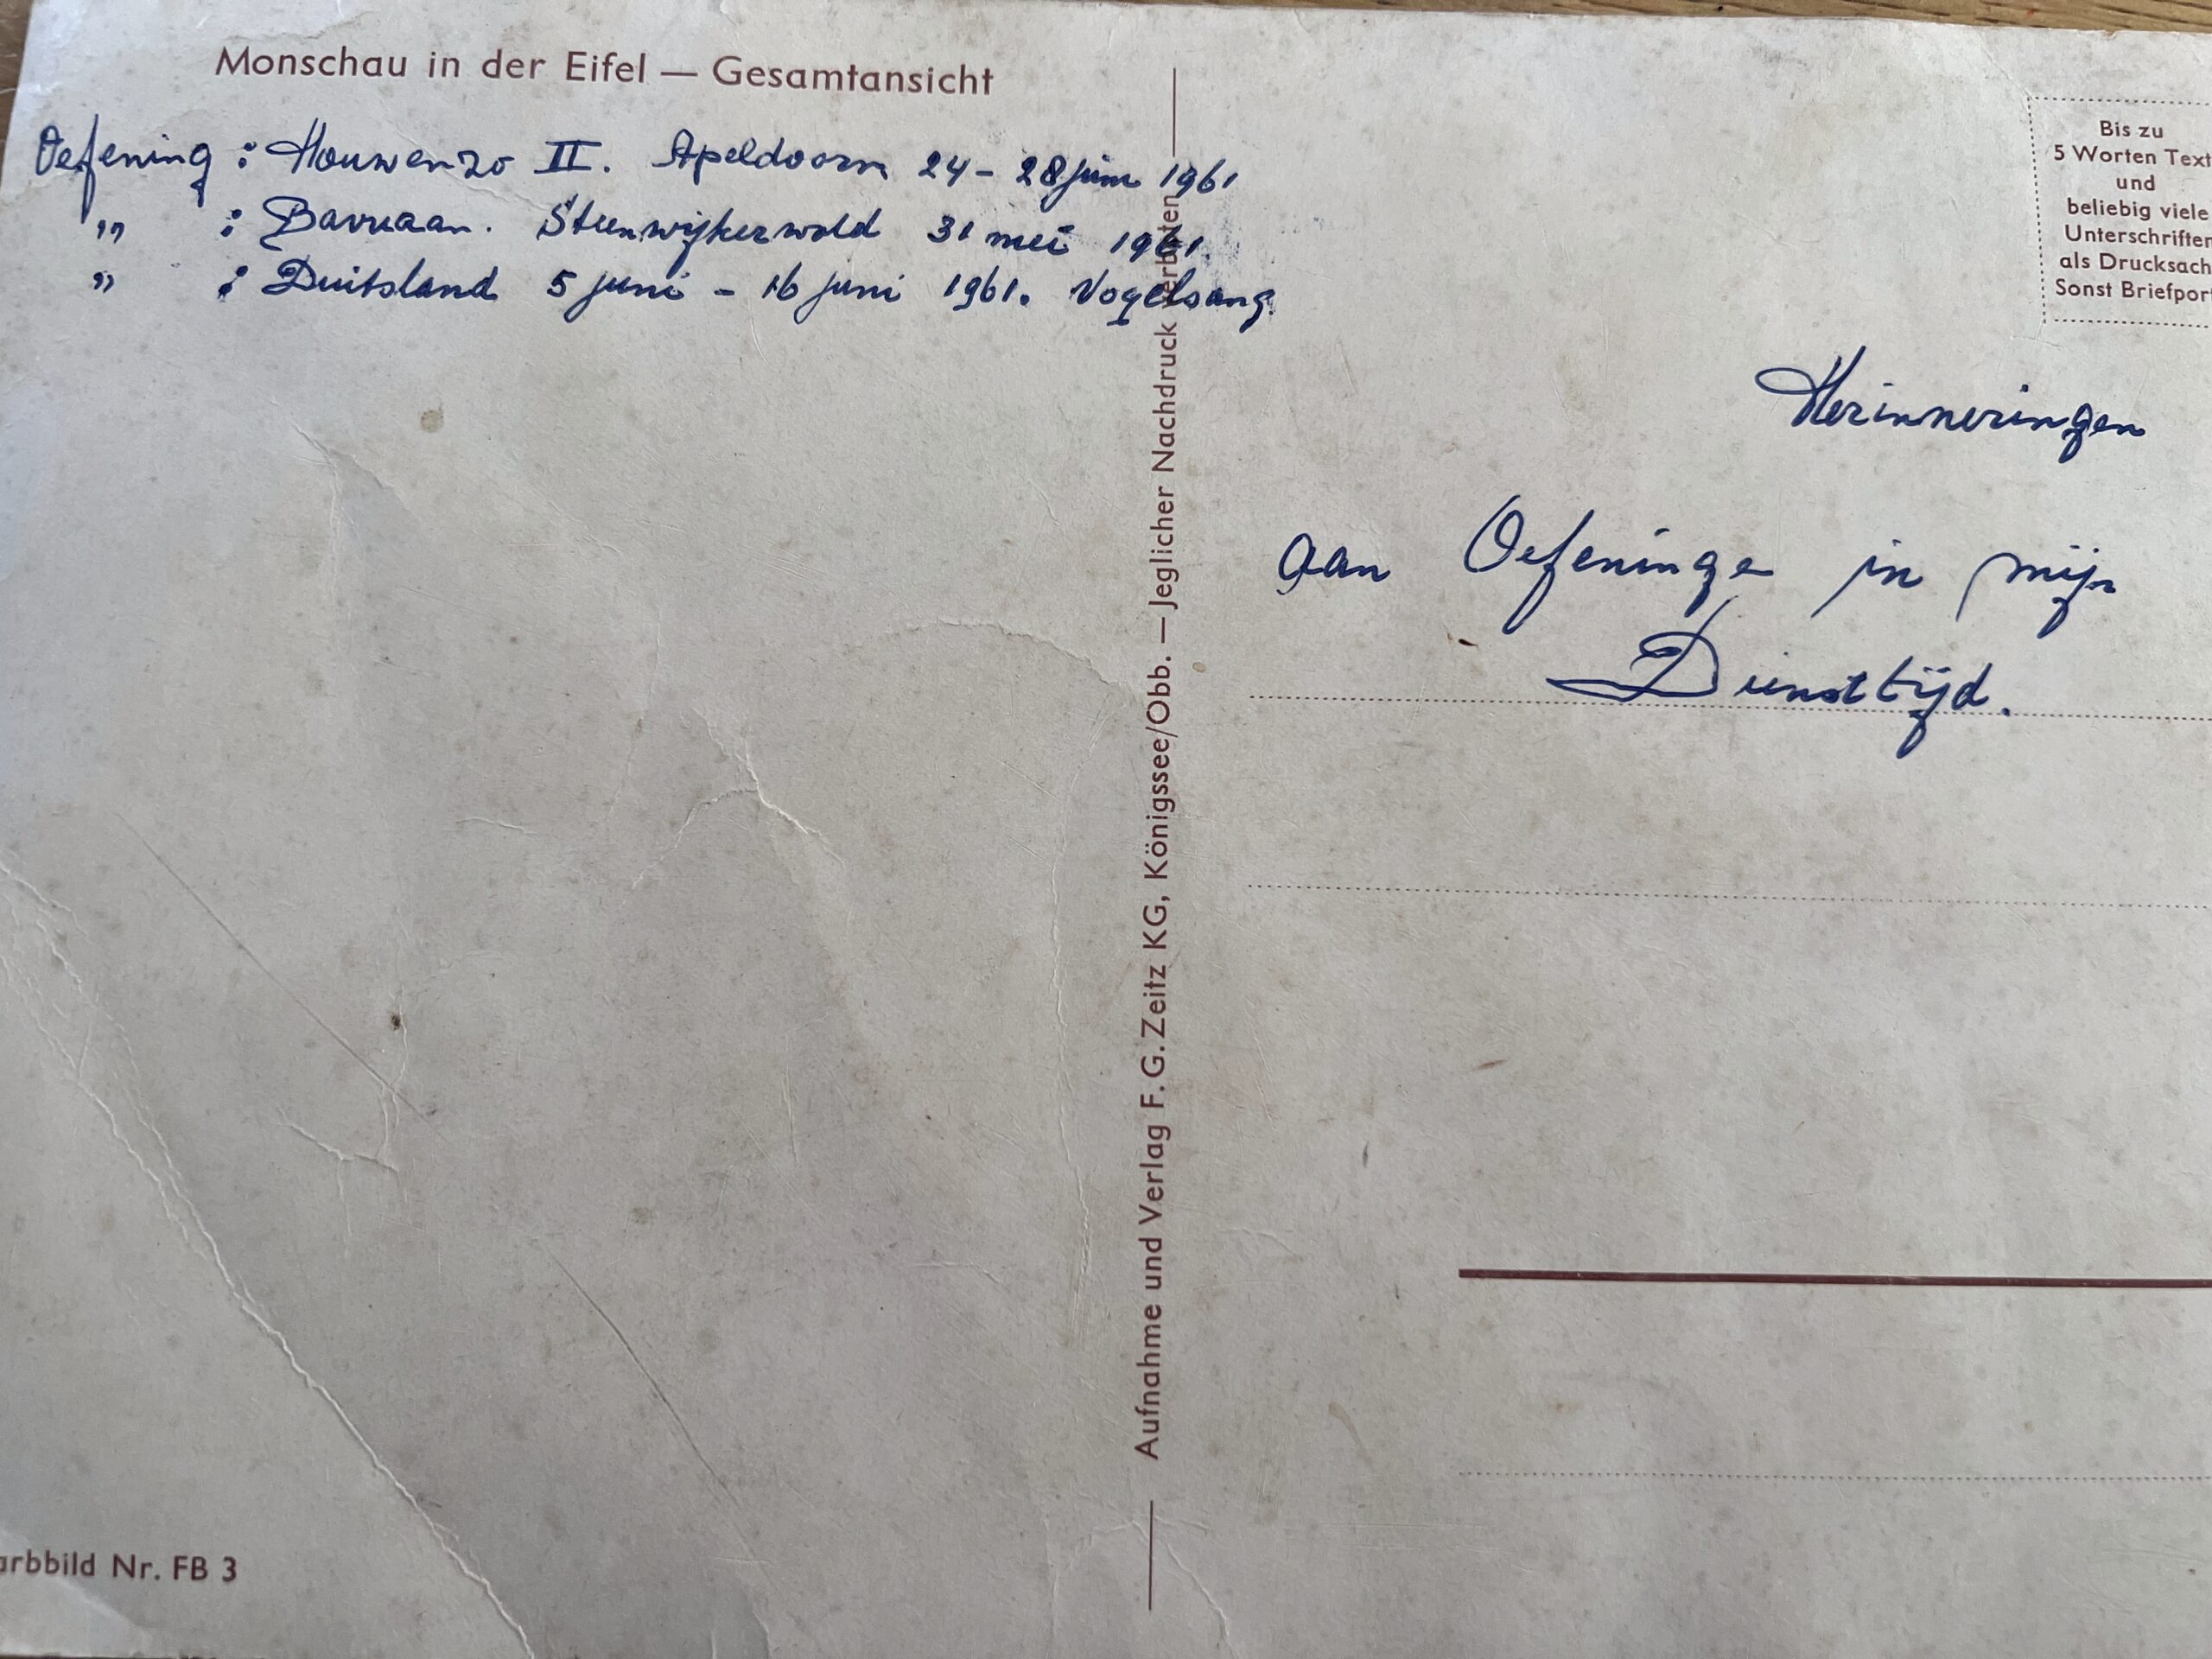 Monschau in der Eifel — Gesamtansicht
Oefening : Houwenzo II. Apeldoorn 24 - 28 juni 1961
" : Steenwijkerwold 31 mei 1961.
" : Duitsland 5 juni - 16 juni 1961. Vogelsang.
Bis zu
5 Worten Text
und
beliebig viele
Unterschriften
als Drucksach
Sonst Briefpor
Herinneringen
aan Oefeninge in mijn
Diensttijd.
Aufnahme und Verlag F. G. Zeitz KG, Königssee/Obb. — Jeglicher Nachdruck verboten
arbbild Nr. FB 3